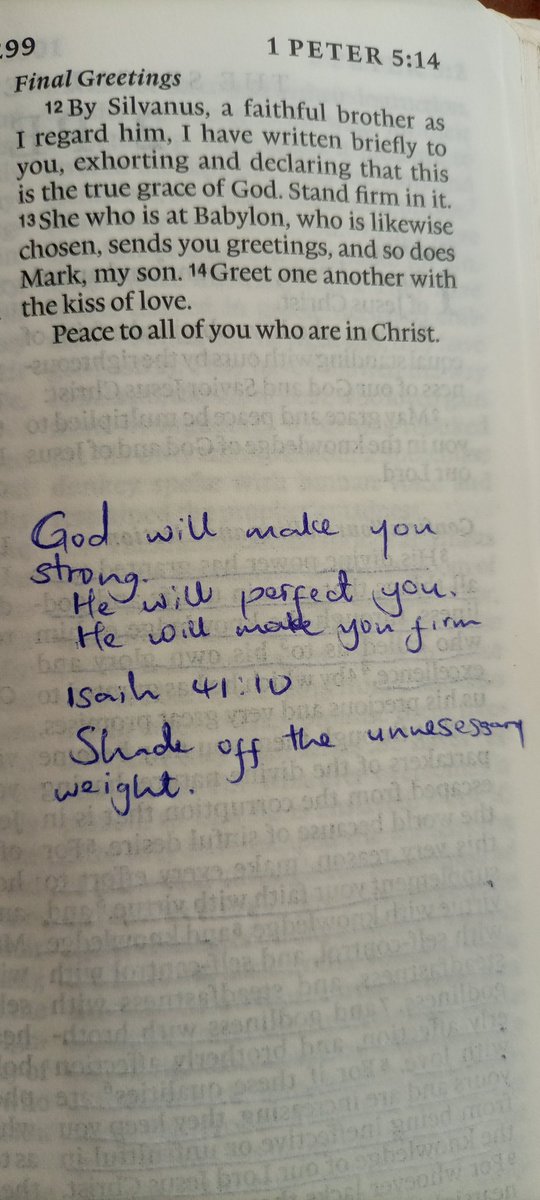 299
1 PETER 5:14
Final Greetings
12 By Silvanus, a faithful brother as
I regard him, I have written briefly to
you, exhorting and declaring that this
is the true grace of God. Stand firm in it.
13 She who is at Babylon, who is likewise
chosen, sends you greetings, and so does
Mark, my son. 14 Greet one another with
the kiss of love.
Peace to all of you who are in Christ.
God will make you
strong.
He will perfect you.
He will make you firm
Isaih 41:10
Shade off the unnesessary
weight.